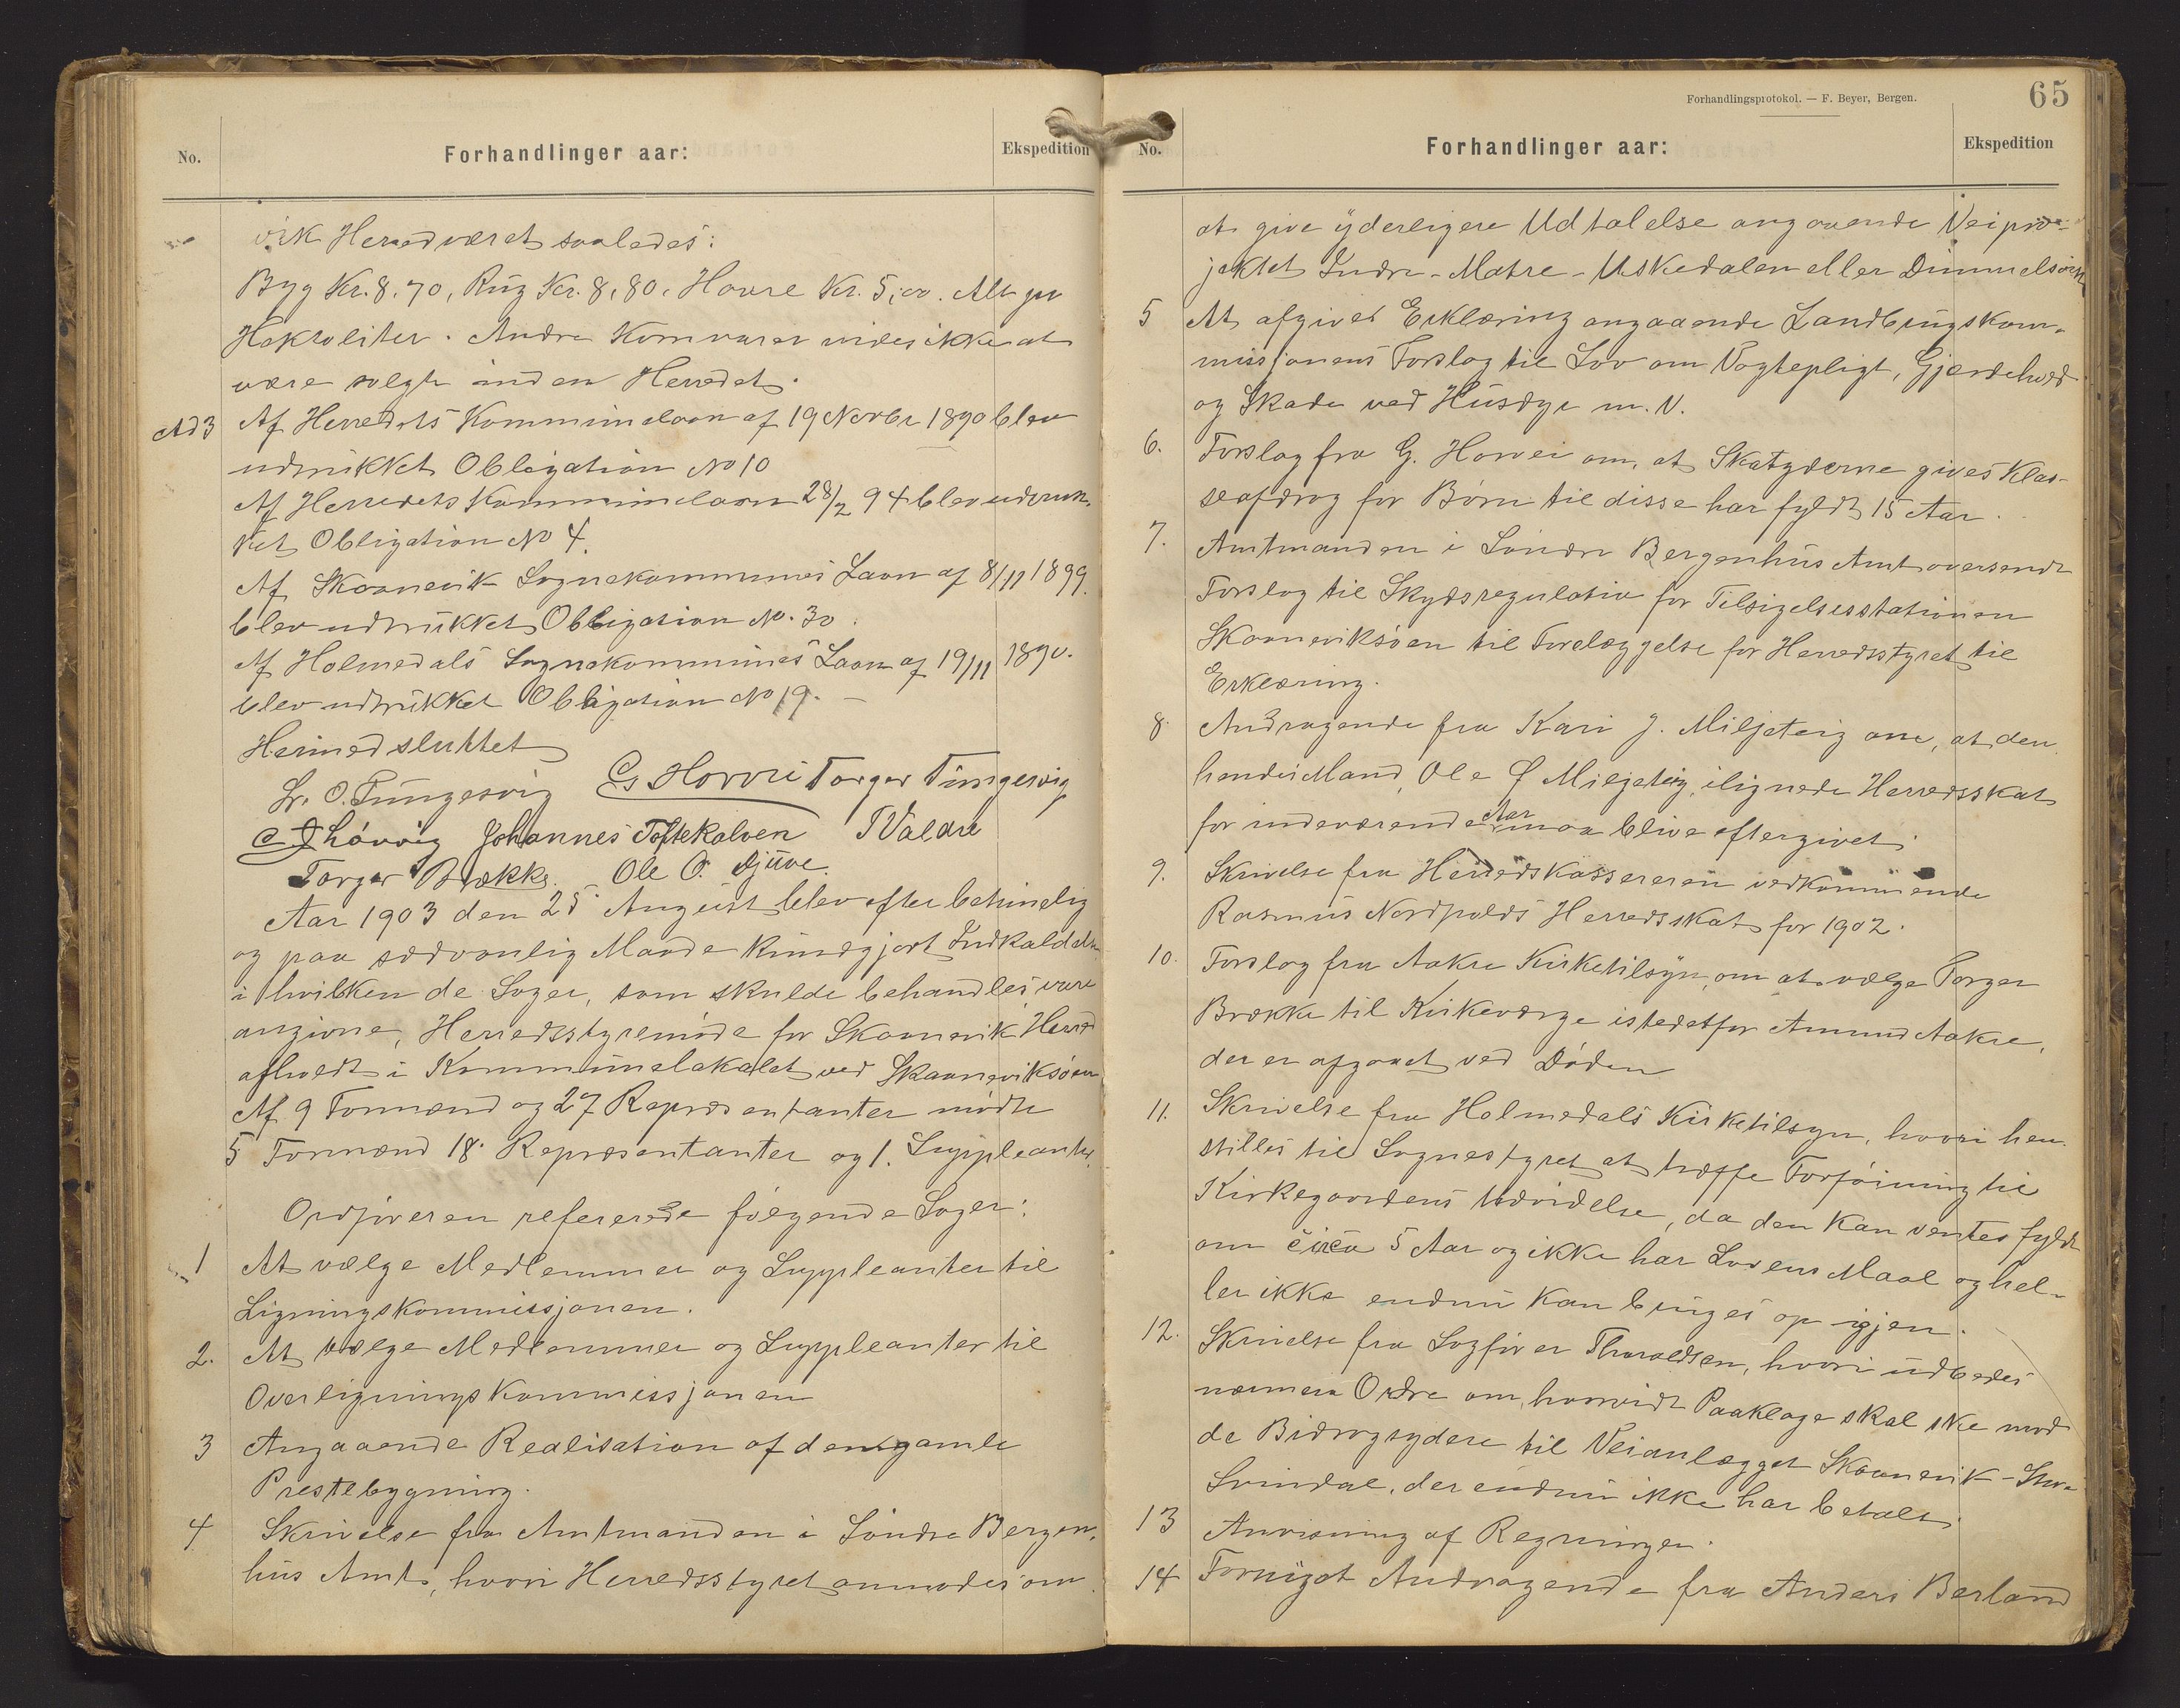 No.
Forhandlinger aar:
Ekspedition
vik Herred været saaledes:
Byg Kr. 8,70, Rug Kr. 8,80, Havre Kr. 5,00. Alt pr
Hektoliter. Andre Kornvarer vides ikke at
være solgt inden Herredet.
Ad 3 Af Herredets Kommunelaan af 19 Novbr 1890 blev
udtrukket Obligation No 10
Af Herredets Kommunelaan 28/2 94 blev udtruk-
ket Obligation No 4.
Af Skaanevik Sognekommunes Laan af 8/11 1899.
blev udtrukket Obligation No. 30.
Af Holmedals Sognekommunes Laan af 19/11 1890.
blev udtrukket Obligation No 19. —
Hermed sluttet
Sr. O. Tungesvig G Horvei Torger Tungesvig
Løvvig Johannes Toftekalven T Valdre
Torger Brække. Ole O. Djuve.
Aar 1903 den 25 August blev efter behørig
og paa sædvanlig Maade kundgjort Indkaldelse
i hvilken de Sager, som skulde behandles vare
angivne, Herredsstyremøde for Skaanevik Herred
afholdt i Kommunelokalet ved Skaaneviksøen
Af 9 Formænd og 27 Repræsentanter mødte
5 Formænd 18. Repræsentanter og 1. Suppleanter.
Ordføreren refererede følgende Sager:
1 At vælge Medlemmer og Suppleanter til
Ligningskommissjonen.
2. At vælge Medlemmer og Suppleanter til
Overligningskommissjonen
3 Angaaende Realisation af den gamle
Prestebygning.
4 Skrivelse fra Amtmanden i Søndre Bergen-
hus Amt, hvori Herredsstyret anmodes om
Forhandlingsprotokol. — F. Beyer, Bergen.
65
No.
Forhandlinger aar:
Ekspedition
at give yderligere Udtalelse angaaende Veipro-
jektet Indre-Matre-Uskedalen eller Dimmelsvik
5 At afgives Erklæring angaaende Landbrugskom-
missjonens Forslag til Lov om Vogtepligt, Gjærdehold
og Skade ved Husdyr m.V.
6. Forslag fra G. Horvei om, at Skatyderne gives Klas-
seafdrag for Børn til disse har fyldt 15 Aar.
7. Amtmanden i Søndre Bergenhus Amt oversendt
Forslag til Skydsregulativ for Tilsigelsesstationen
Skaaneviksøen til Forelæggelse for Herredsstyret til
Erklæring.
8. Andragende fra Kari J. Miljeteig om, at den
hendes Mand, Ole Ø Miljeteig, ilignede Herredsskat
for indeværende Aar maa blive eftergivet.
9. Skrivelse fra Herredskassereren vedkommende
Rasmus Nordfolds Herredsskat for 1902.
10. Forslag fra Aakre Kirketilsyn, om at vælge Torger
Brække til Kirkeværge istedetfor Amund Aakre,
der er afgaaet ved Døden
11. Skrivelse fra Holmedals Kirketilsyn, hvori hen-
stilles til Sognestyret at træffe Forføining til
Kirkegaardens Udvidelse, da den kan ventes fyldt
om circa 5 Aar og ikke har Lovens Maal og hel-
ler ikke endnu kan bruges op igjen.
12. Skrivelse fra Sagfører Tharaldsen, hvori udbedes
nærmere Ordre om, hvorvidt Paaklage skal ske mod
de Bidragsydere til Veianlægget Skaanevik-
Svindal, der endnu ikke har betalt.
13 Anvisning af Regninger.
14 Fornyet Andragende fra Anders Berland